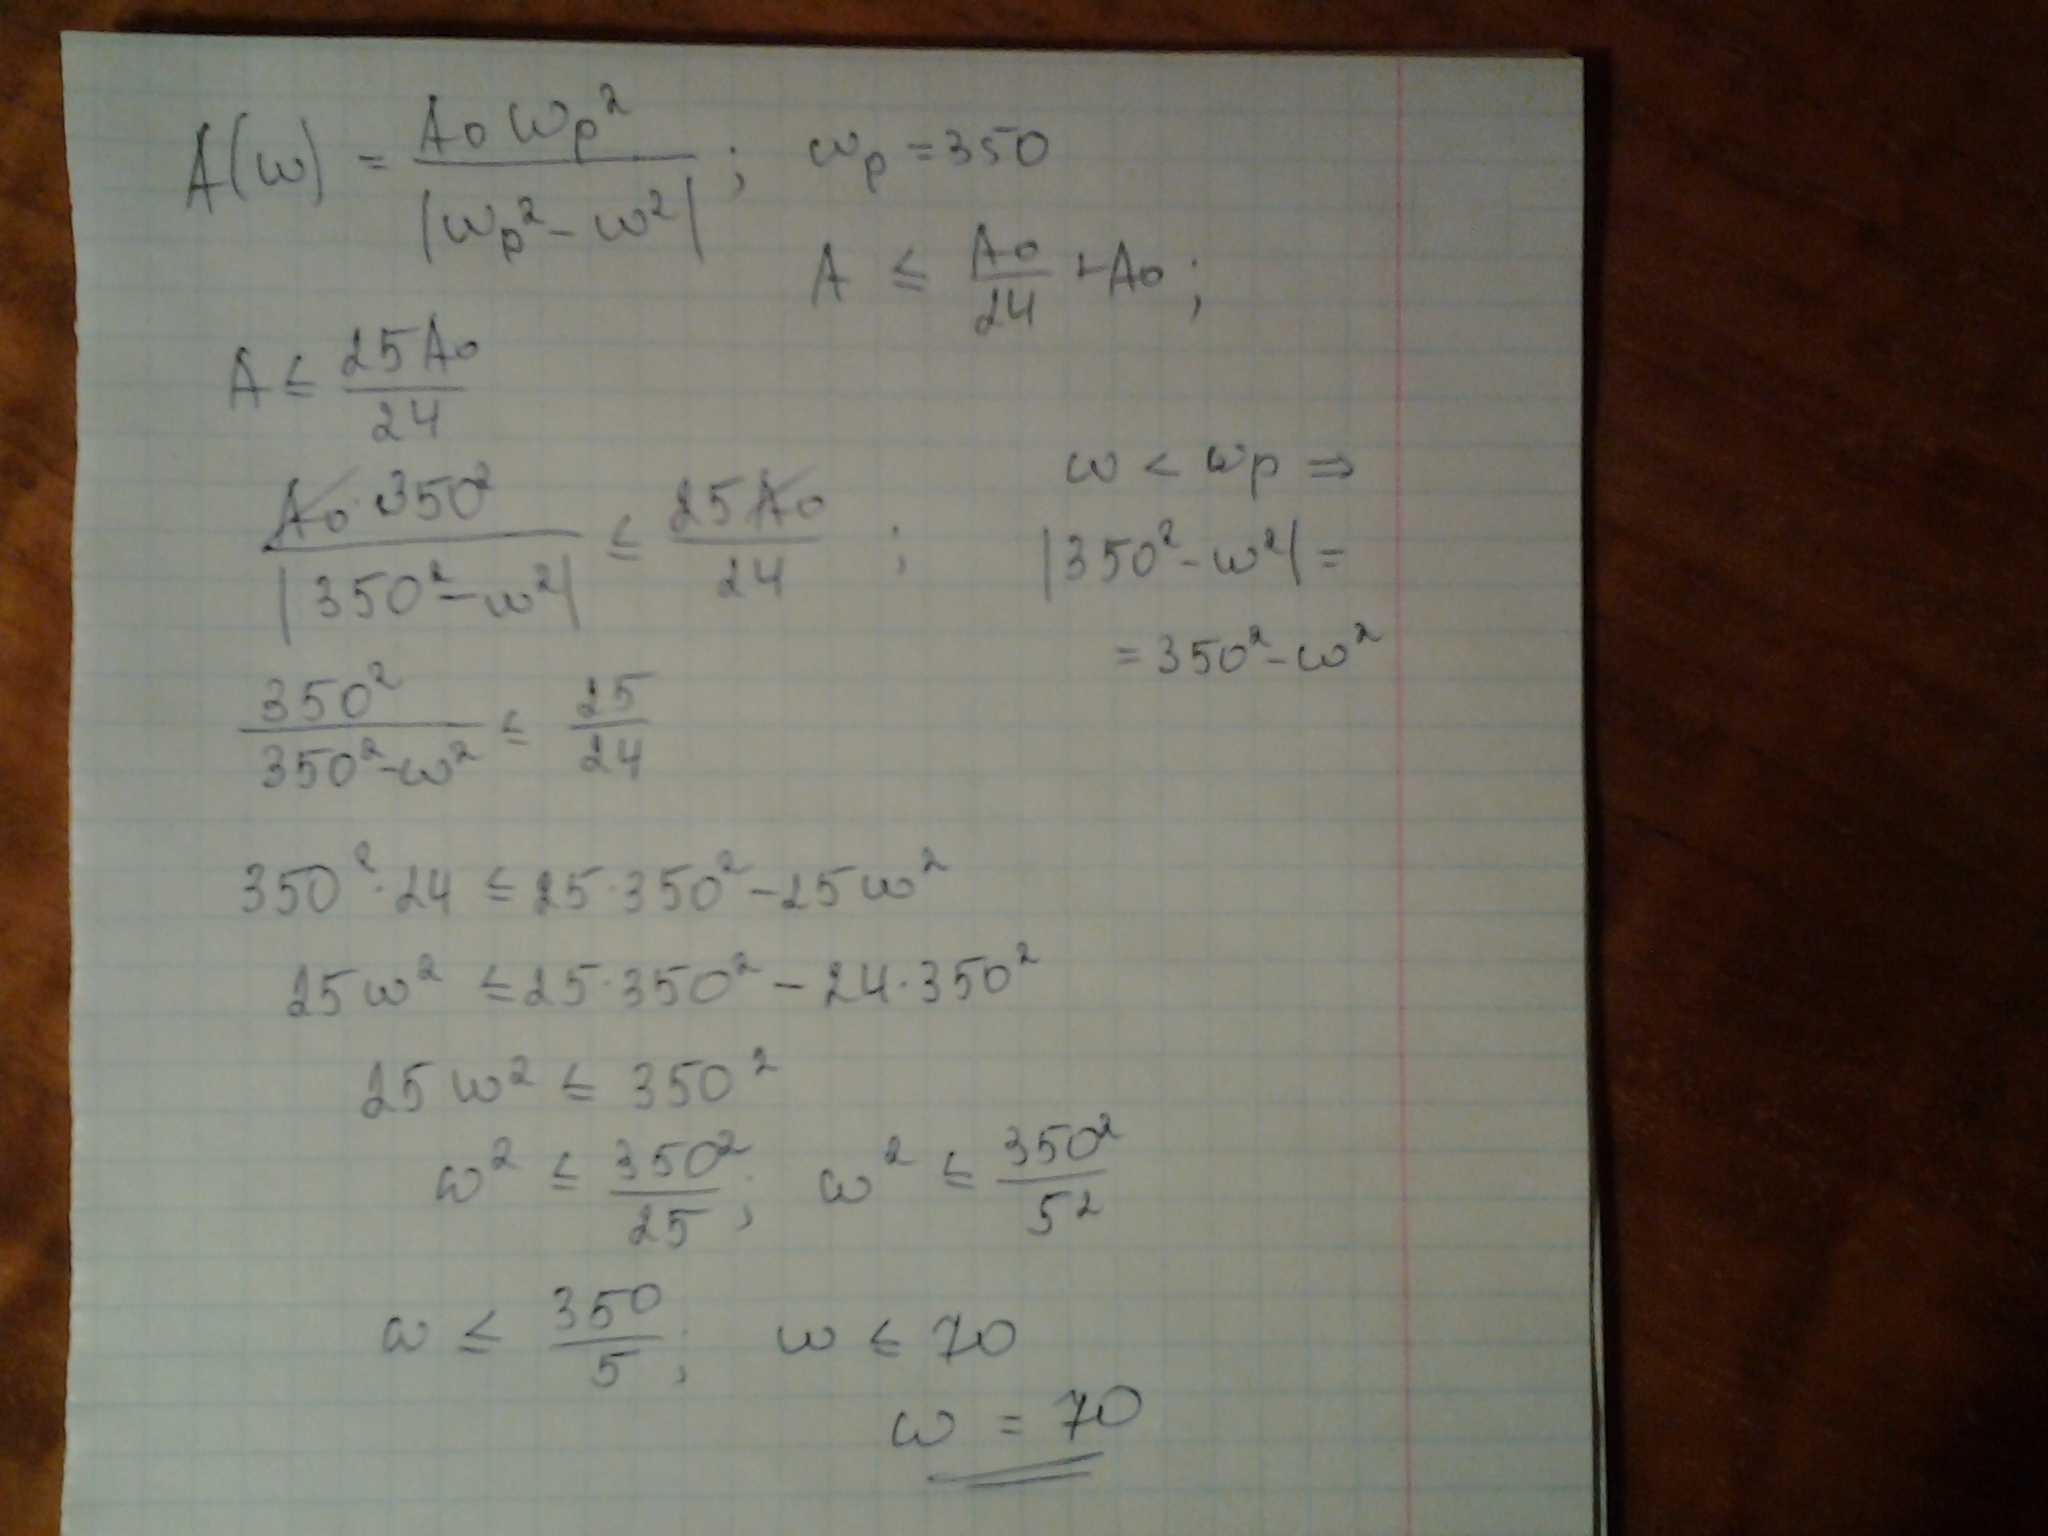 A(ω) = A₀ωₚ² / |ωₚ² - ω²| ; ωₚ = 350
A ≤ A₀/24 + A₀ ;
A ≤ 25A₀/24
A₀·350² / |350² - ω²| ≤ 25A₀/24 ;
ω < ωₚ ⇒
|350² - ω²| =
= 350² - ω²
350² / 350² - ω² ≤ 25/24
350²·24 ≤ 25·350² - 25ω²
25ω² ≤ 25·350² - 24·350²
25ω² ≤ 350²
ω² ≤ 350²/25 ; ω² ≤ 350²/5²
ω ≤ 350/5 ; ω ≤ 70
ω = 70